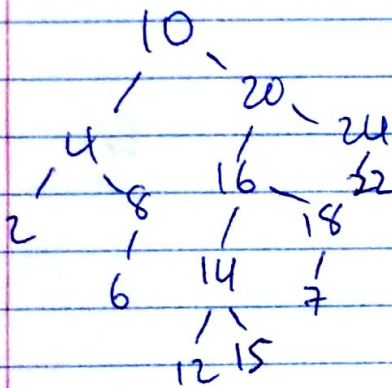 10
20
4 24
2 8 16 22
18
6 14 7
12 15